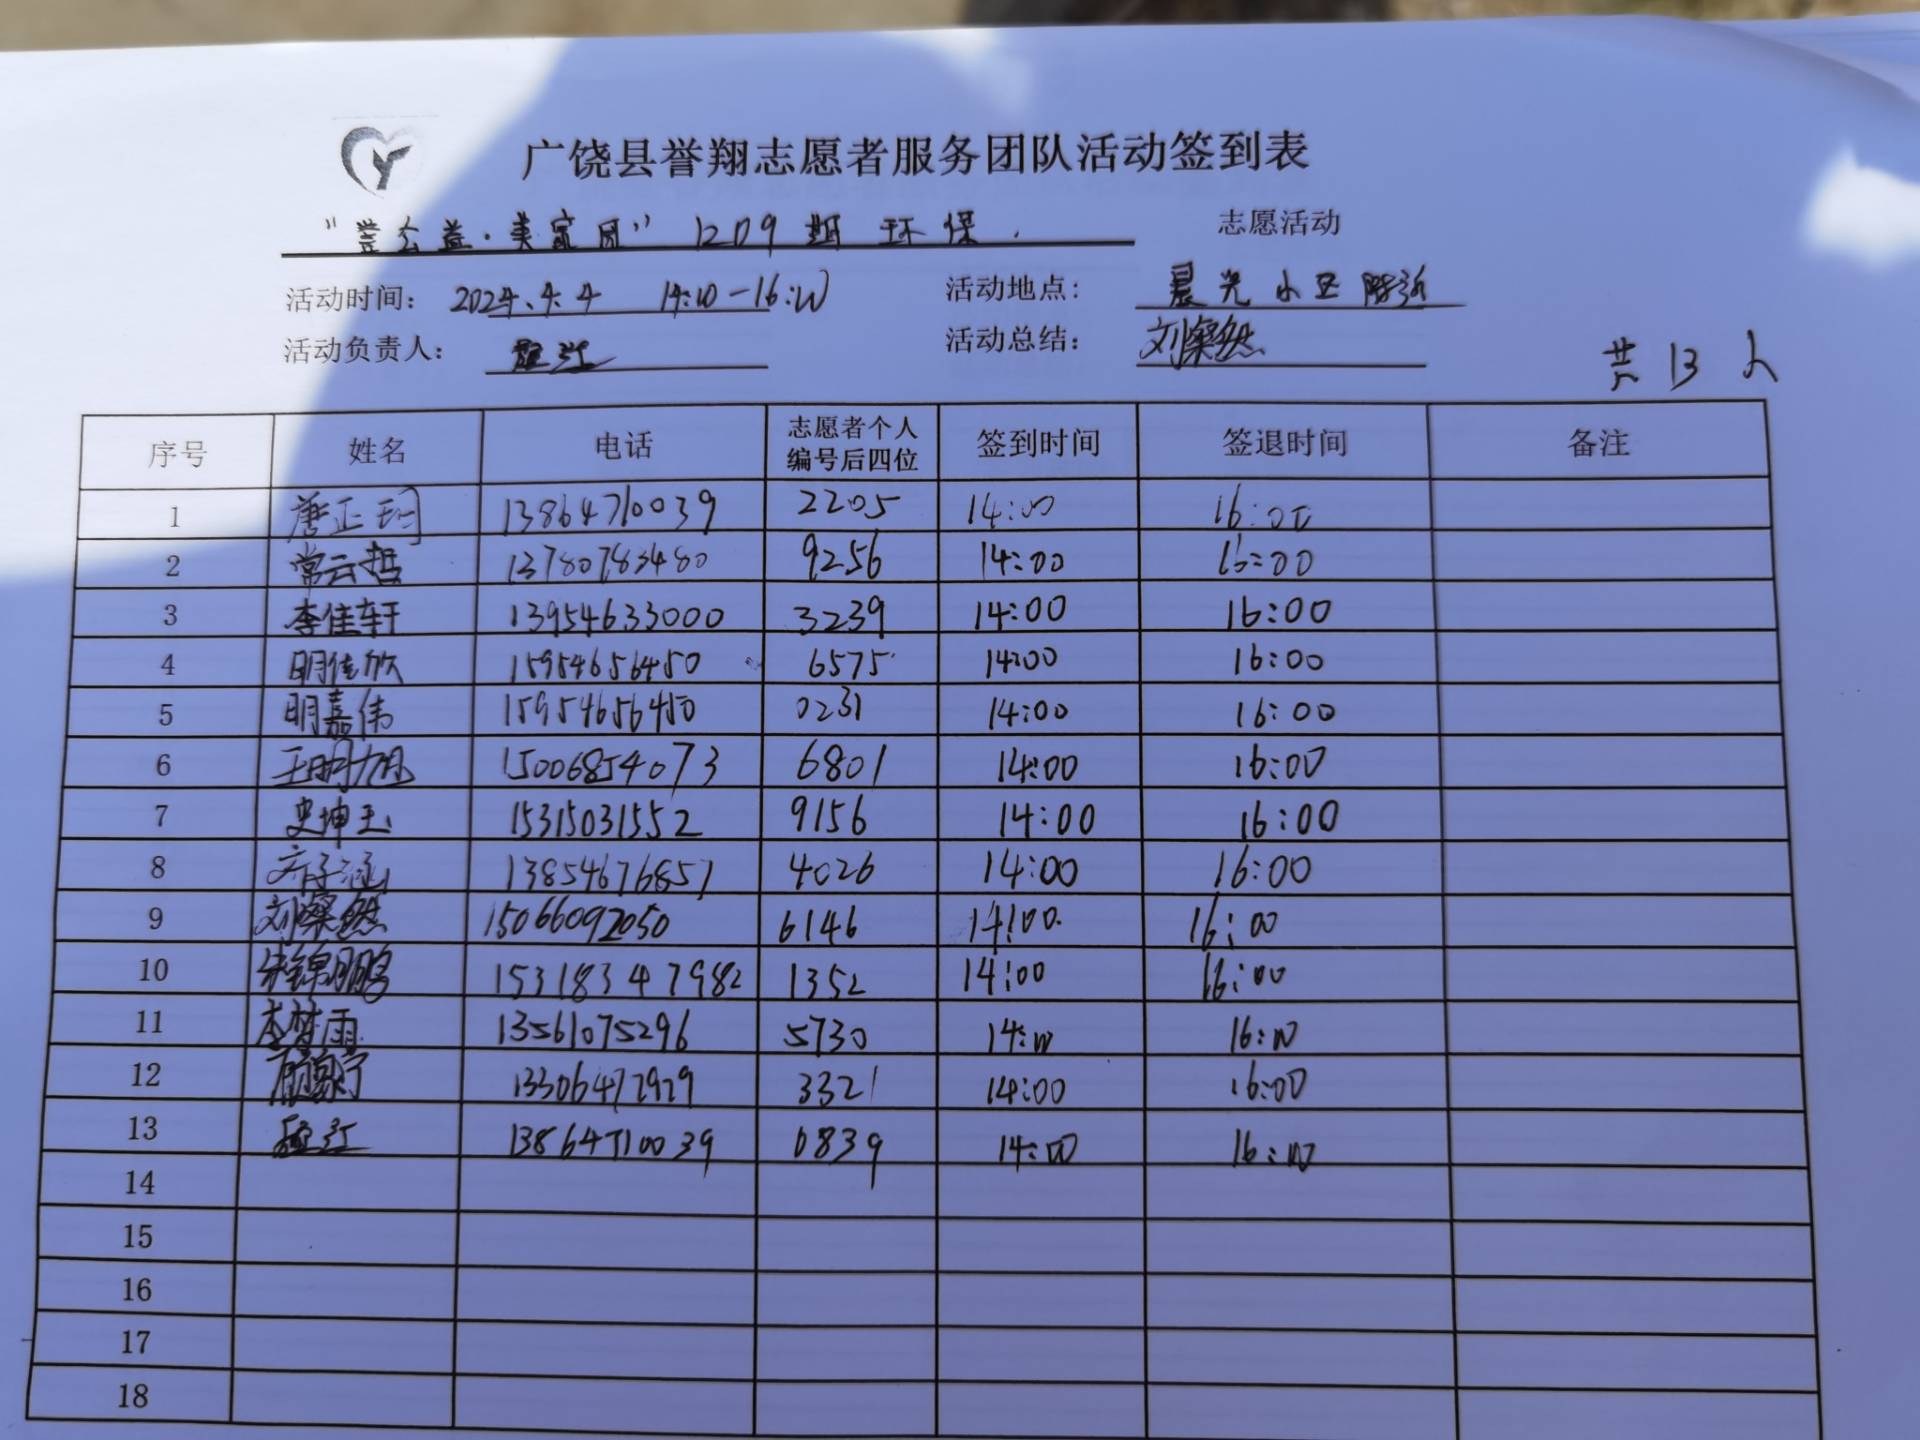 广饶县誉翔志愿者服务团队活动签到表
“誉公益·美家园” 1209期 环保. 志愿活动
活动时间: 2024.4.4 14:00-16:00 活动地点: 晨光小区附近
活动负责人: 活动总结: 刘燦然
共13人
序号 姓名 电话 志愿者个人编号后四位 签到时间 签退时间 备注
1 唐正玥 13864710039 2205 14:00 16:00
2 常云哲 13780783480 9256 14:00 16:00
3 李佳轩 13954633000 3239 14:00 16:00
4 明佳欣 15954656450 6575 14:00 16:00
5 明嘉伟 15954656450 0231 14:00 16:00
6 王明旭 15006854073 6801 14:00 16:00
7 史坤玉 15315031552 9156 14:00 16:00
8 齐子涵 13854676857 4026 14:00 16:00
9 刘燦然 15066092050 6146 14:00 16:00
10 宋锦鹏 15318347982 1352 14:00 16:00
11 李梦雨 13561075296 5730 14:00 16:00
12 13306472929 3321 14:00 16:00
13 13864710039 0839 14:00 16:00
14
15
16
17
18